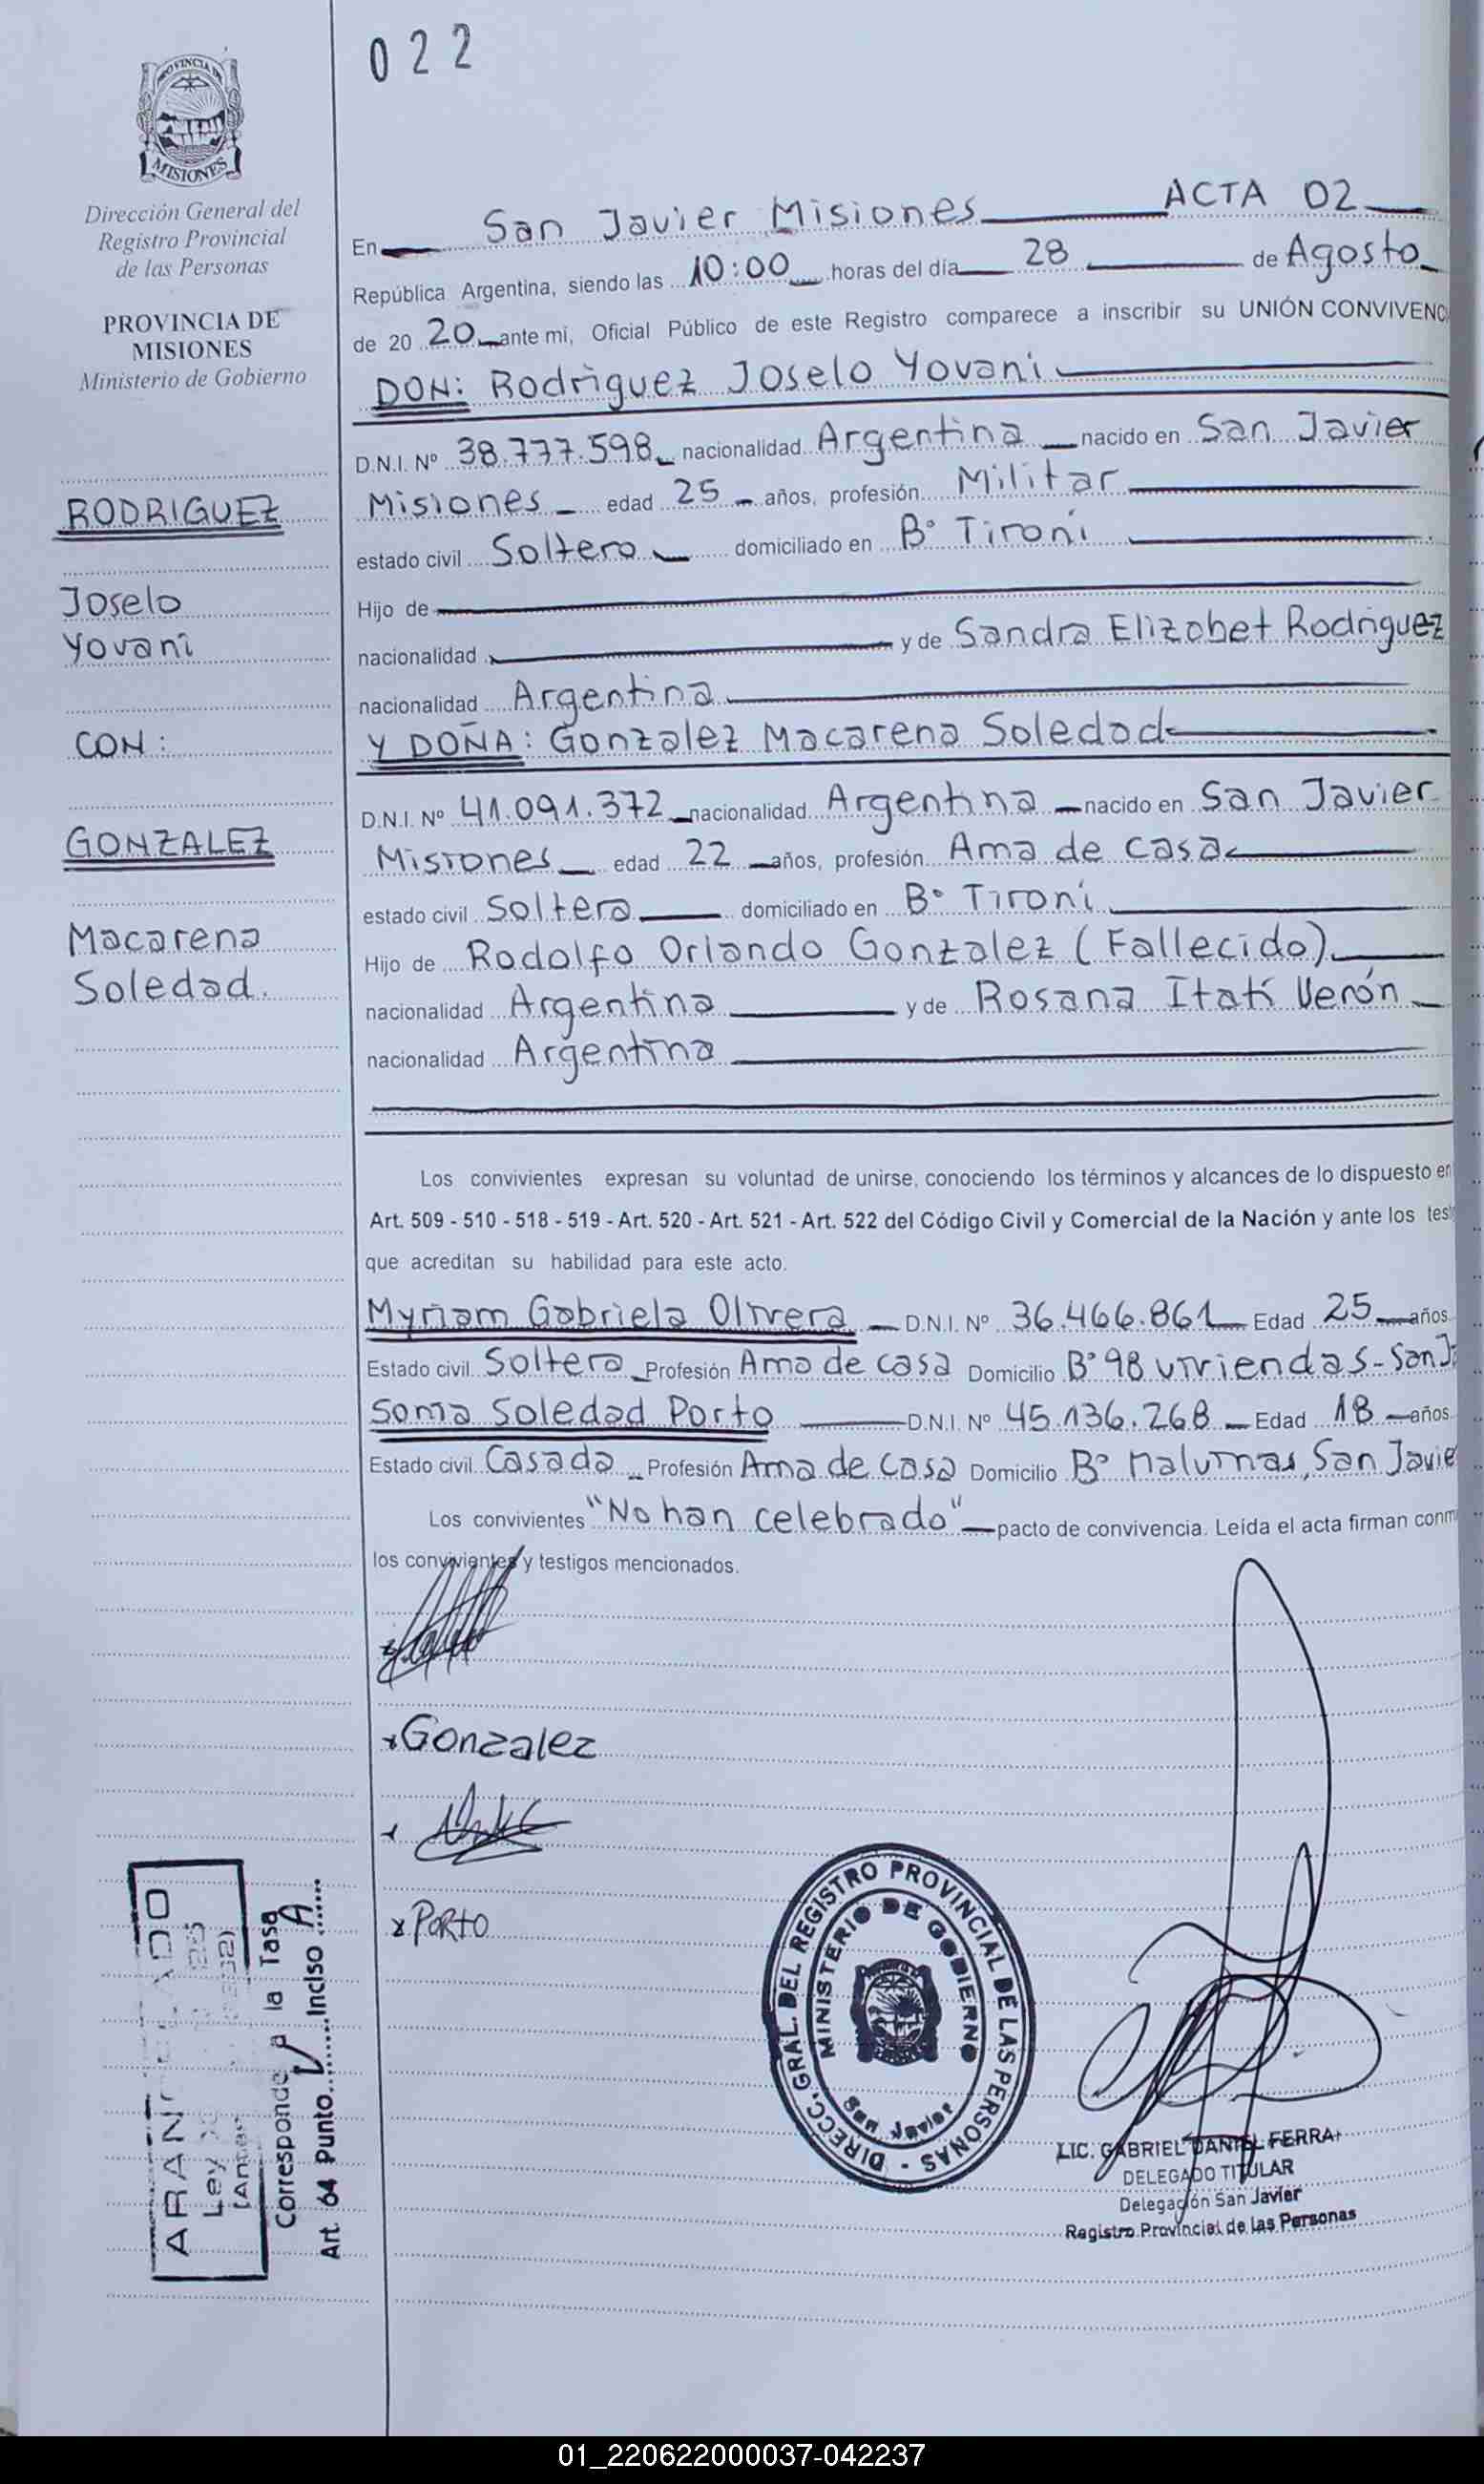 022
PROVINCIA DE
MISIONES
Dirección General del
Registro Provincial
de las Personas
PROVINCIA DE
MISIONES
Ministerio de Gobierno
RODRIGUEZ
Joselo
Yovani
CON:
GONZALEZ
Macarena
Soledad.
ACTA 02
En San Javier Misiones
República Argentina, siendo las 10:00 horas del día 28 de Agosto
de 20 20 ante mi, Oficial Público de este Registro comparece a inscribir su UNIÓN CONVIVENC
DON: Rodriguez Joselo Yovani
D.N.I. Nº 38.777.598 nacionalidad Argentina nacido en San Javier
Misiones edad 25 años, profesión Militar
estado civil Soltero domiciliado en Bº Tironi
Hijo de
nacionalidad y de Sandra Elizabet Rodriguez
nacionalidad Argentina
Y DOÑA: Gonzalez Macarena Soledad
D.N.I. Nº 41.091.372 nacionalidad Argentina nacido en San Javier
Misiones edad 22 años, profesión Ama de casa
estado civil Soltera domiciliado en Bº Tironi
Hijo de Rodolfo Orlando Gonzalez (Fallecido)
nacionalidad Argentina y de Rosana Itatí Verón
nacionalidad Argentina
Los convivientes expresan su voluntad de unirse, conociendo los términos y alcances de lo dispuesto en
Art. 509 - 510 - 518 - 519 - Art. 520 - Art. 521 - Art. 522 del Código Civil y Comercial de la Nación y ante los tes
que acreditan su habilidad para este acto.
Myriam Gabriela Olivera D.N.I. Nº 36.466.861 Edad 25 años
Estado civil Soltera Profesión Ama de casa Domicilio Bº 98 viviendas - San J
Sonia Soledad Porto D.N.I. Nº 45.136.268 Edad 18 años
Estado civil Casada Profesión Ama de casa Domicilio Bº Malvinas, San Javie
Los convivientes "No han celebrado" pacto de convivencia. Leída el acta firman conm
los convivientes y testigos mencionados.
x Gonzalez
x
x Porto
ARAN ADO
Ley
Corresponde a la Tasa
Art. 64 Punto V Inciso A
DIRECC. GRAL. DEL REGISTRO PROVINCIAL DE LAS PERSONAS -
MINISTERIO DE GOBIERNO
San Javier
LIC. GABRIEL DANIEL FERRA
DELEGADO TITULAR
Delegación San Javier
Registro Provincial de las Personas
01_220622000037-042237